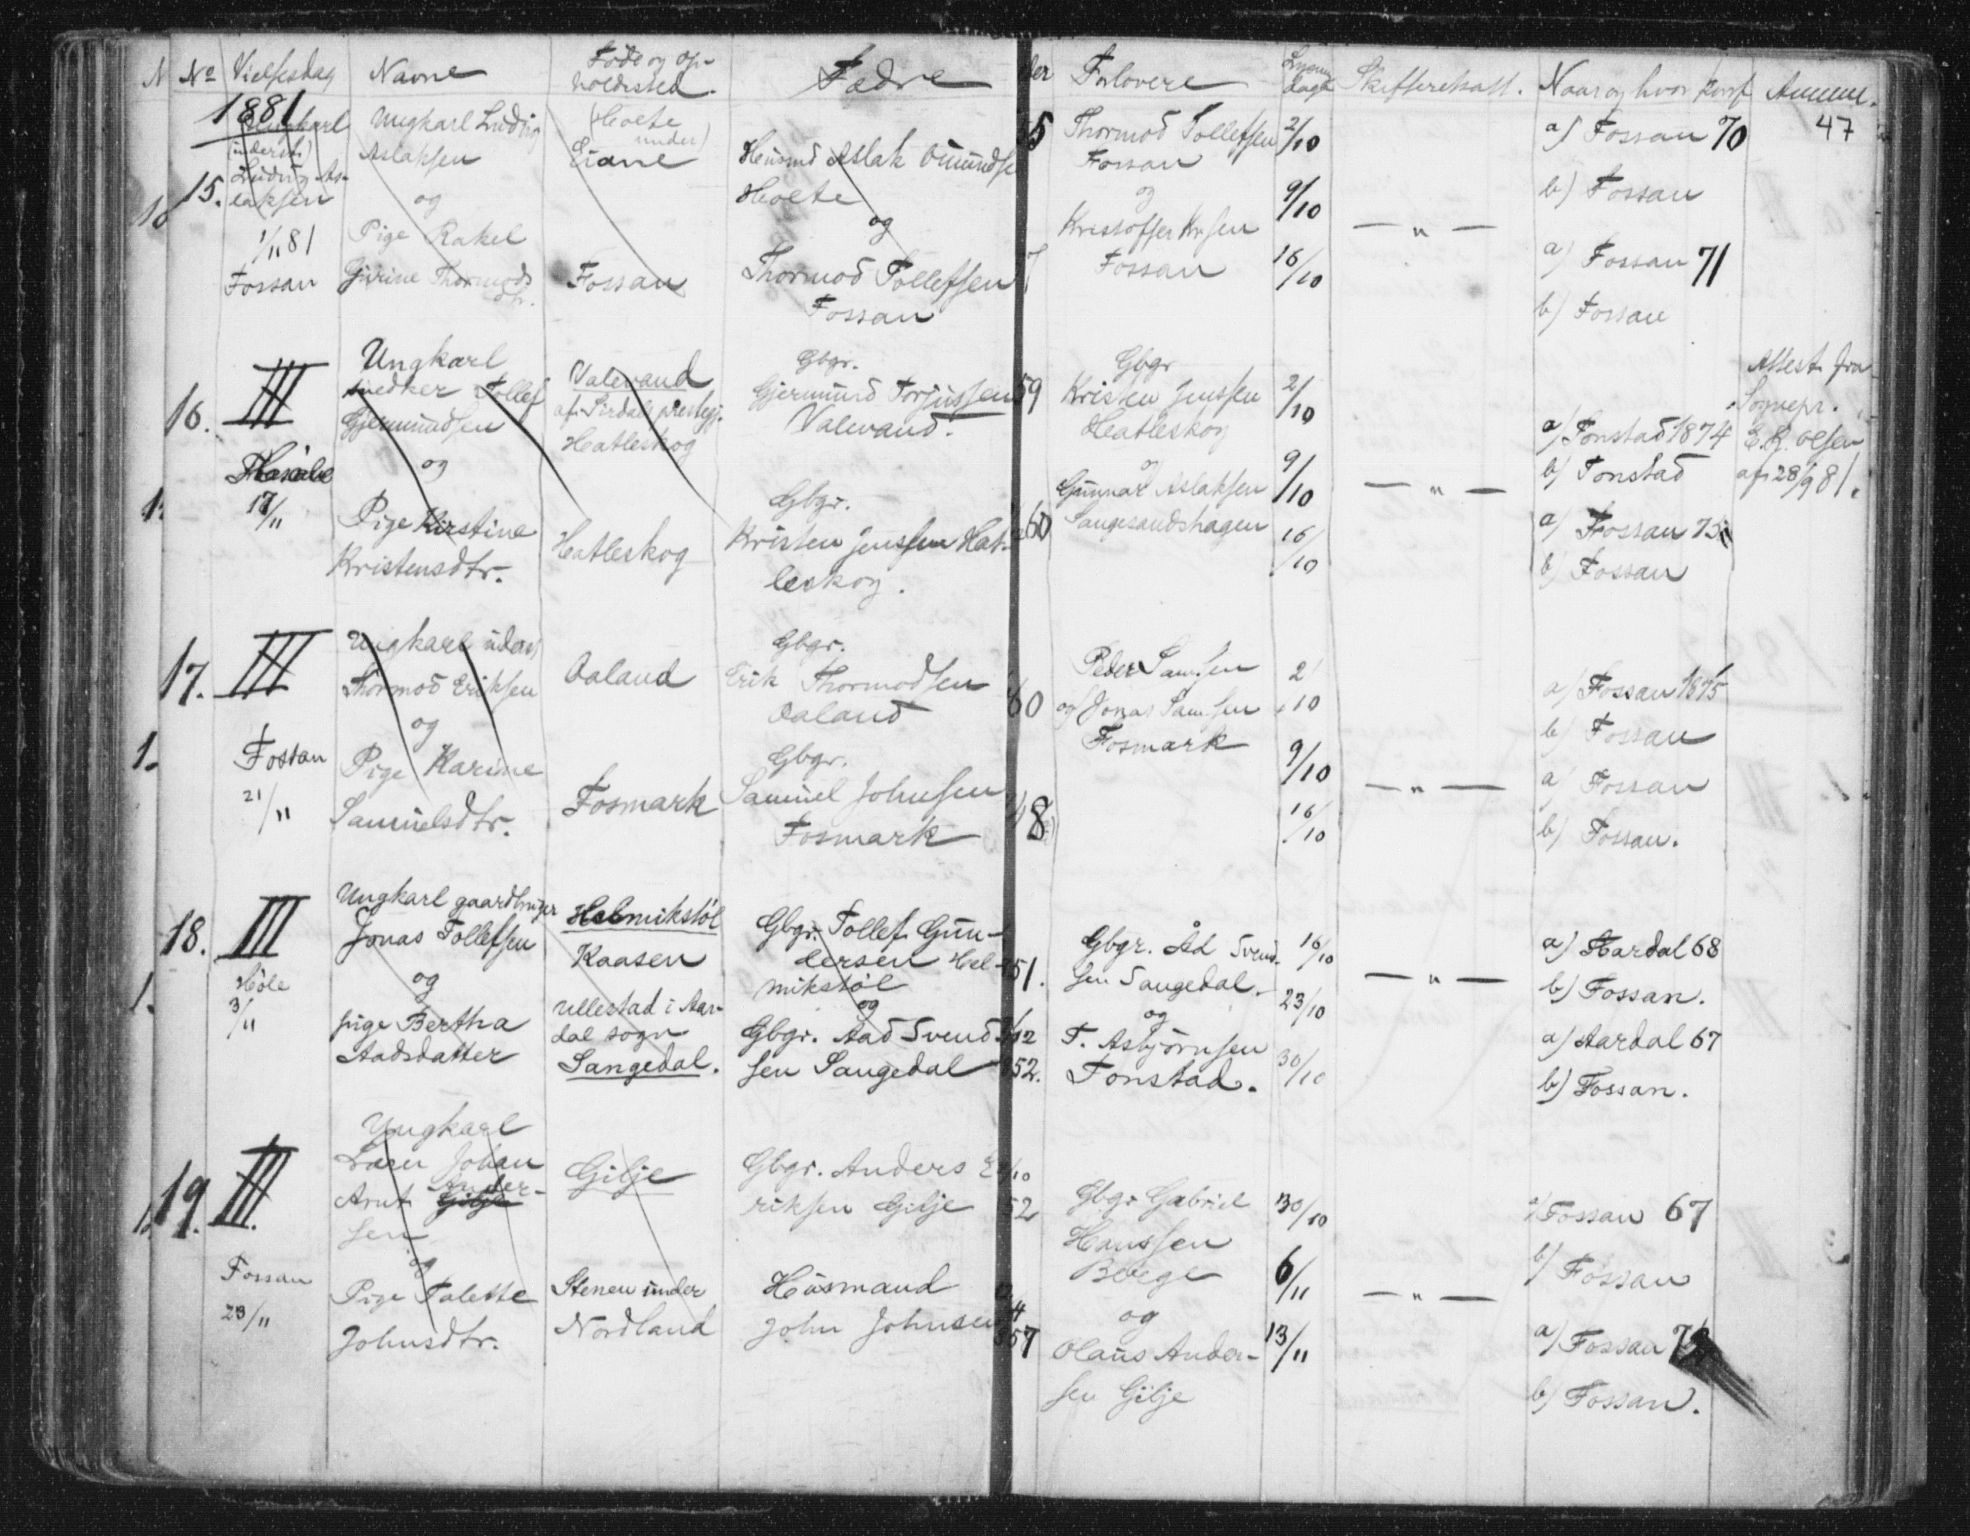 No Vielsesdag Navne Føde og Op-
holdssted. Fædre
Forlovere Lysnings
dage Skifteretsatt. Naar og hvor konf Anmm.
47
1881
Ungkarl
(underst.)
Ludvig As-
laksen
15.
1/11 81
Fossan
Ungkarl Ludvig
Aslaksen
og
Pige Rakel
Gurine Thormods
dtr.
(Hoete
under)
Eiane
Fossan
Husmd Aslak Omundse
Hoete
og
Thormod Tollefsen
Fossan
5
Thormod Tollefsen
Fossan
og
Kristoffer Krsen
Fossan
2/10
9/10
16/10
— " —
a) Fossan 70
b) Fossan
a) Fossan 71
b) Fossan
16.
III
17/11
Ungkarl
snedker Tollef
Gjermundsen
og
Pige Kirstine
Kristensdtr.
Valevand
af Sirdals prestegj.
Hatleskog
Hatleskog
Gbgr.
Gjermund Torjussen
Valevand.
Gbgr.
Kristen Jenssen Hat-
leskog.
59
60
Gbgr
Kristen Jenssen
Hatleskog
og
Gunnar Aslaksen
Sangesandshagen
2/10
9/10
16/10
— " —
a) Tonstad 1874
b) Tonstad
a) Fossan 75
b) Fossan
Attest fra
Sognepr.
E. G. Olsen
af 28/9 81.
17.
III
Fossan
21/11
Ungkarl underst
Thormod Eriksen
og
Pige Karine
Samuelsdtr.
Oaland
Fosmark
Gbgr.
Erik Thormodsen
Oaland
Gbgr.
Samuel Johnsen
Fosmark
60
Peder Samsen
og Jonas Samsen
Fosmark
2/10
9/10
16/10
— " —
a) Fossan 1875
b) Fossan
a) Fossan
b) Fossan.
18.
III
Høle
3/11
Ungkarl gaardbruger
Jonas Tollefsen
og
pige Bertha
Aadsdatter
Helmikstøl
Kaasen
Ullestad i Aar-
dal sogn
Sangedal.
Gbgr. Tollef Gun-
dersen Hel-
mikstøl
og
Gbgr. Aad Svend-
sen Sangedal
51.
52.
Gbgr. Åd Svend-
sen Sangedal.
og
T. Asbjørnsen
Tonstad.
16/10
23/10
30/10
— " —
a) Aardal 68
b) Fossan.
a) Aardal 67
b) Fossan.
19.
III.
Fossan
23/11
Ungkarl
Lars Johan
Arnt Ander-
sen
og
Pige Talette
Johnsdtr.
Gilje
Stenen under
Nordland
Gbgr. Anders E-
riksen Gilje
Husmand
John Johnsen
52
57
Gbgr Gabriel
Hanssen
Berge
og
Olaus Ander-
sen Gilje
30/10
6/11
13/11
— " —
a) Fossan 67
b) Fossan
a) Fossan
b) Fossan.